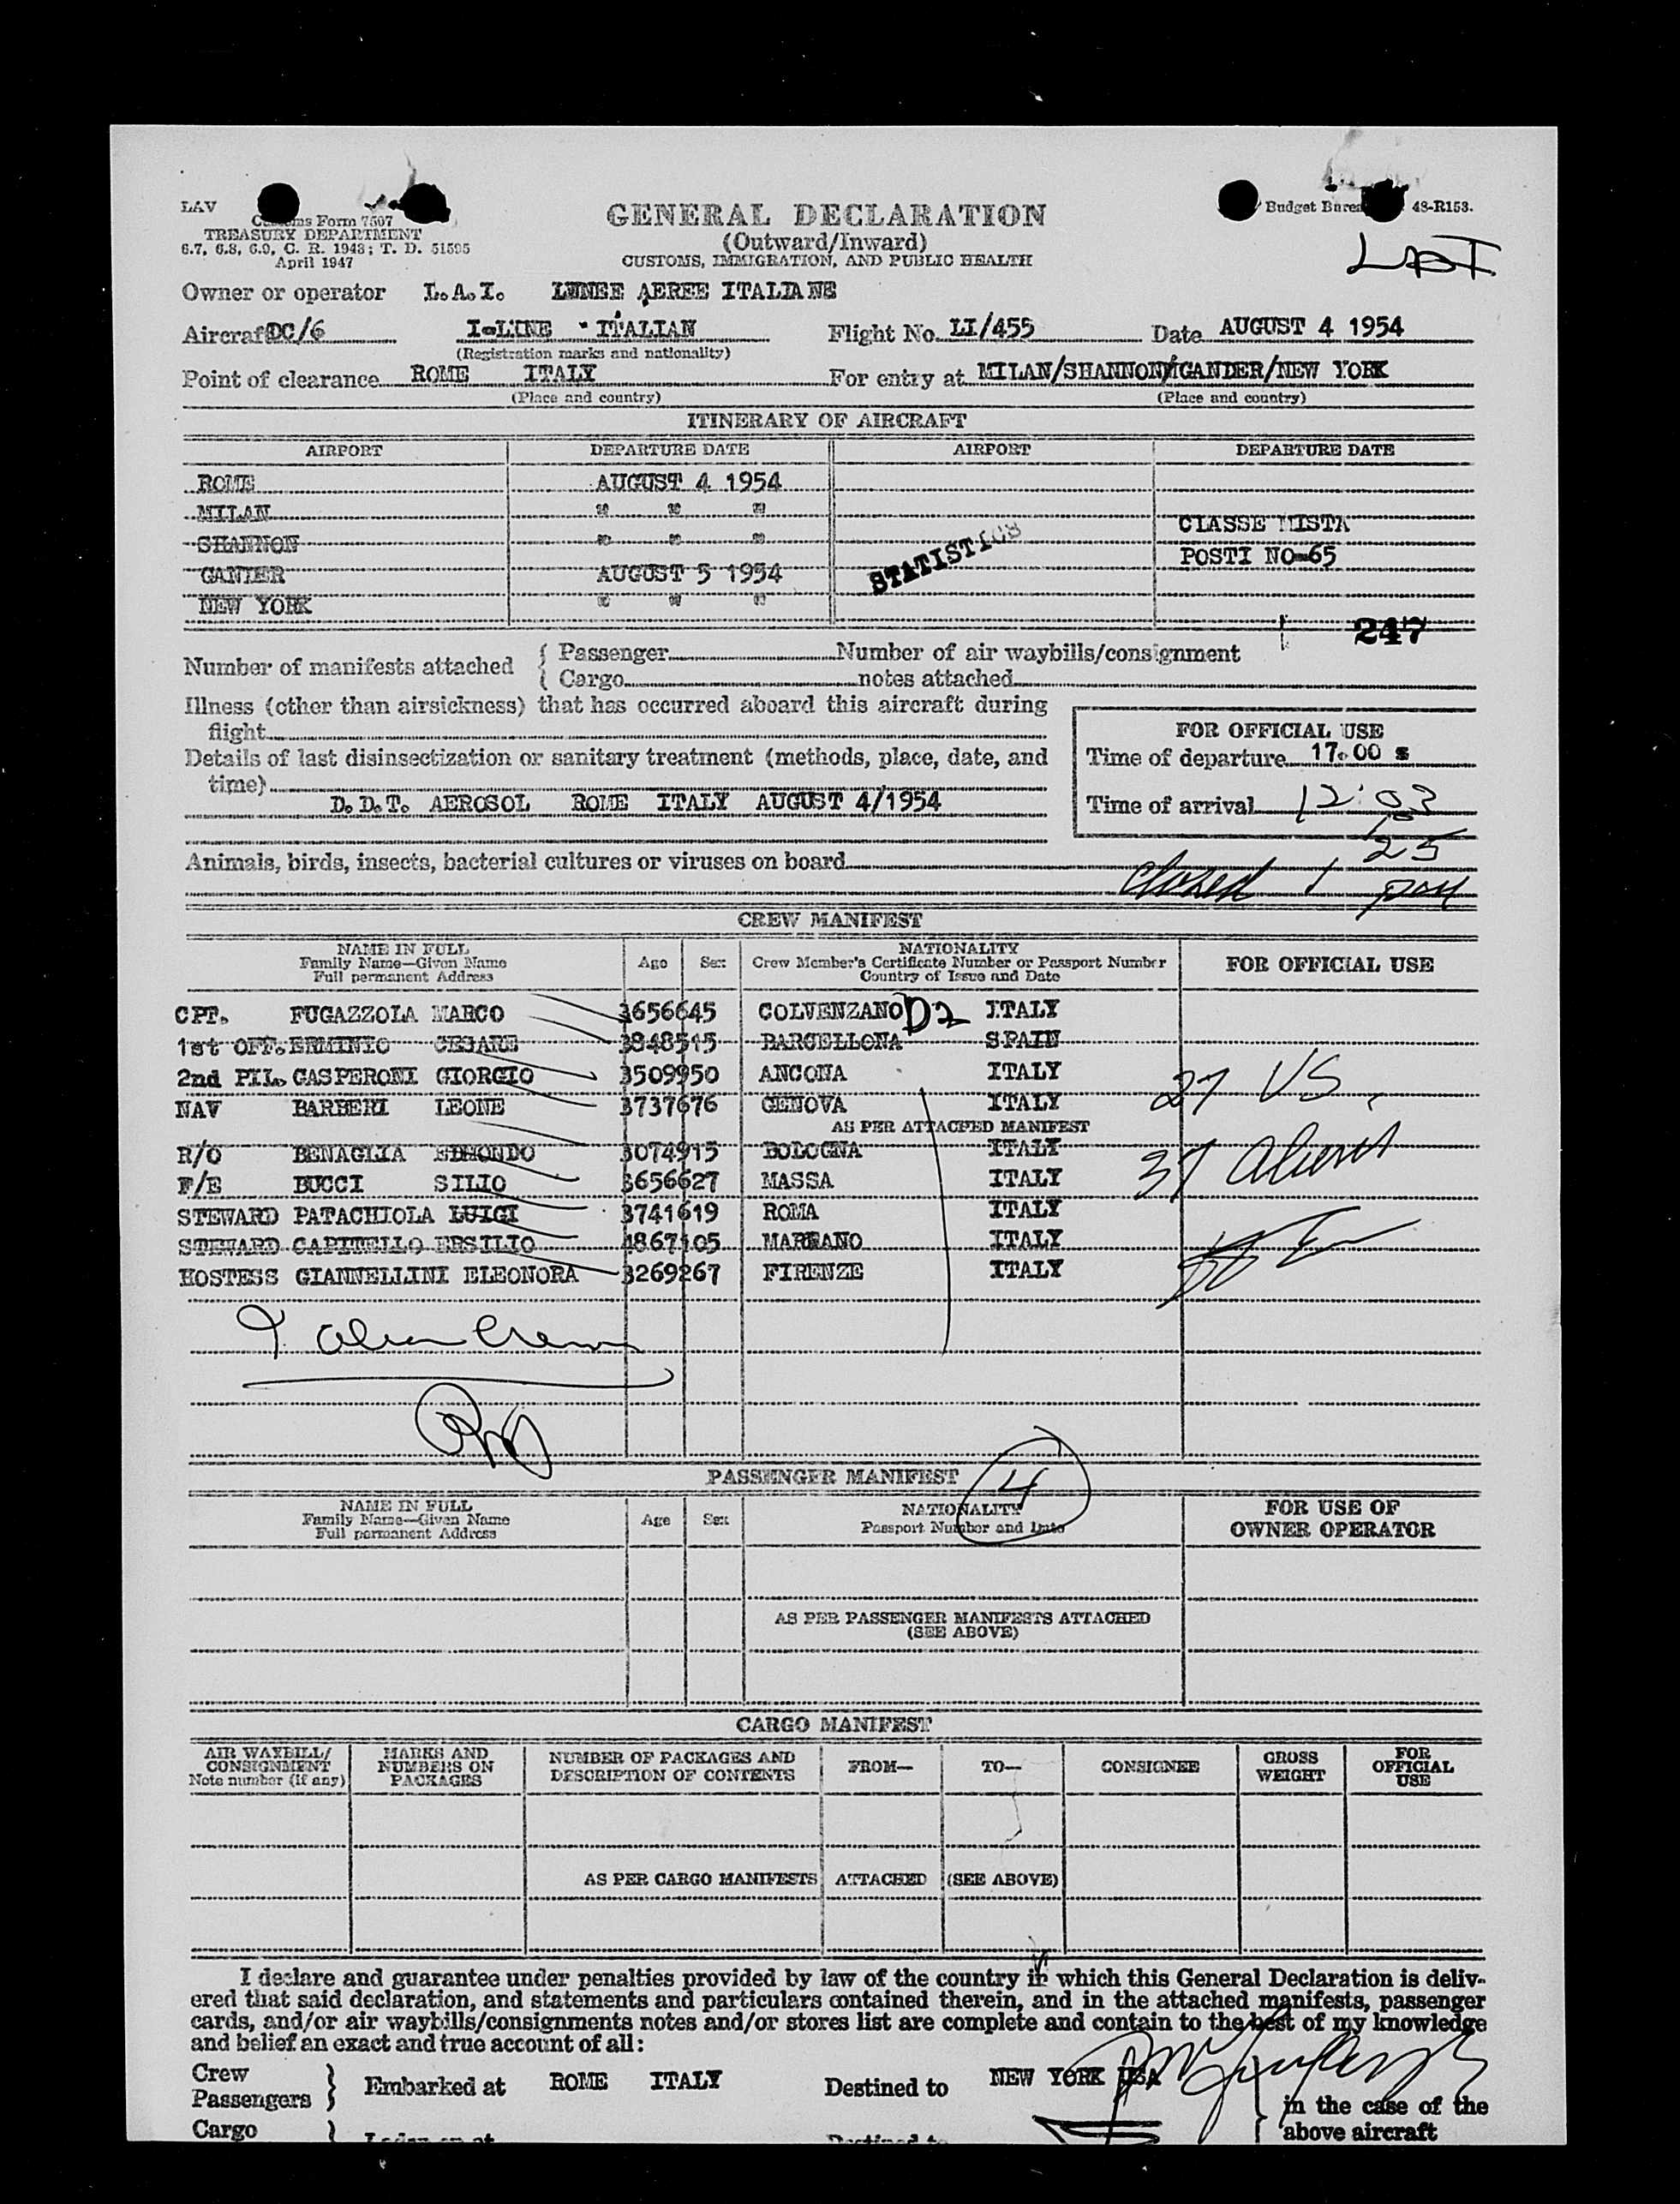 LAV
Customs Form 7507
TREASURY DEPARTMENT
6.7, 6.8, 6.9, C. R. 1943; T. D. 51595
April 1947
GENERAL DECLARATION
(Outward/Inward)
CUSTOMS, IMMIGRATION, AND PUBLIC HEALTH
Budget Bureau 48-R153.
Owner or operator L.A.I. LINEE AEREE ITALIANE
Aircraft DC/6 I-LINE - ITALIAN Flight No. LI/455 Date AUGUST 4 1954
(Registration marks and nationality)
Point of clearance ROME ITALY For entry at MILAN/SHANNON/GANDER/NEW YORK
(Place and country) (Place and country)
ITINERARY OF AIRCRAFT
AIRPORT DEPARTURE DATE AIRPORT DEPARTURE DATE
ROME AUGUST 4 1954
MILAN " " "
CLASSE MISTA
SHANNON " " "
STATISTICS
POSTI NO-65
GANDER AUGUST 5 1954
NEW YORK " " "
247
Number of manifests attached { Passenger Number of air waybills/consignment
{ Cargo notes attached
Illness (other than airsickness) that has occurred aboard this aircraft during
flight
FOR OFFICIAL USE
Details of last disinsectization or sanitary treatment (methods, place, date, and
time)
Time of departure 17.00 z
D.D.T. AEROSOL ROME ITALY AUGUST 4/1954
Time of arrival 12:03
25
Animals, birds, insects, bacterial cultures or viruses on board
closed 1 pm
CREW MANIFEST
NAME IN FULL
Family Name—Given Name
Full permanent Address
Age Sex
NATIONALITY
Crew Member's Certificate Number or Passport Number
Country of Issue and Date
FOR OFFICIAL USE
CPT. FUGAZZOLA MARCO 3656645 COLVENZANO D2 ITALY
1st OFF. ERMINIO CESARE 3848515 BARCELLONA SPAIN
2nd PIL. GASPERONI GIORGIO 3509950 ANCONA ITALY
27 US
NAV BARBERI LEONE 3737676 GENOVA ITALY
AS PER ATTACHED MANIFEST
R/O BENAGLIA 3074915 BOLOGNA ITALY
37 aliens
F/E BUCCI SILIO 3656627 MASSA ITALY
STEWARD PATACHIOLA LUIGI 3741619 ROMA ITALY
STEWARD CAPITELLO ERSILIO 4867105 MARRANO ITALY
HOSTESS GIANNELLINI ELEONORA 3269267 FIRENZE ITALY
9. alien Crew
PASSENGER MANIFEST
4
NAME IN FULL
Family Name—Given Name
Full permanent Address
Age Sex
NATIONALITY
Passport Number and Date
FOR USE OF
OWNER OPERATOR
AS PER PASSENGER MANIFESTS ATTACHED
(SEE ABOVE)
CARGO MANIFEST
AIR WAYBILL/
CONSIGNMENT
Note number (if any)
MARKS AND
NUMBERS ON
PACKAGES
NUMBER OF PACKAGES AND
DESCRIPTION OF CONTENTS
FROM—
TO—
CONSIGNEE
GROSS
WEIGHT
FOR
OFFICIAL
USE
AS PER CARGO MANIFESTS ATTACHED (SEE ABOVE)
I declare and guarantee under penalties provided by law of the country in which this General Declaration is deliv-
ered that said declaration, and statements and particulars contained therein, and in the attached manifests, passenger
cards, and/or air waybills/consignments notes and/or stores list are complete and contain to the best of my knowledge
and belief an exact and true account of all:
Crew
Passengers } Embarked at ROME ITALY Destined to NEW YORK USA
in the case of the
Cargo } Laden on at Destined to above aircraft